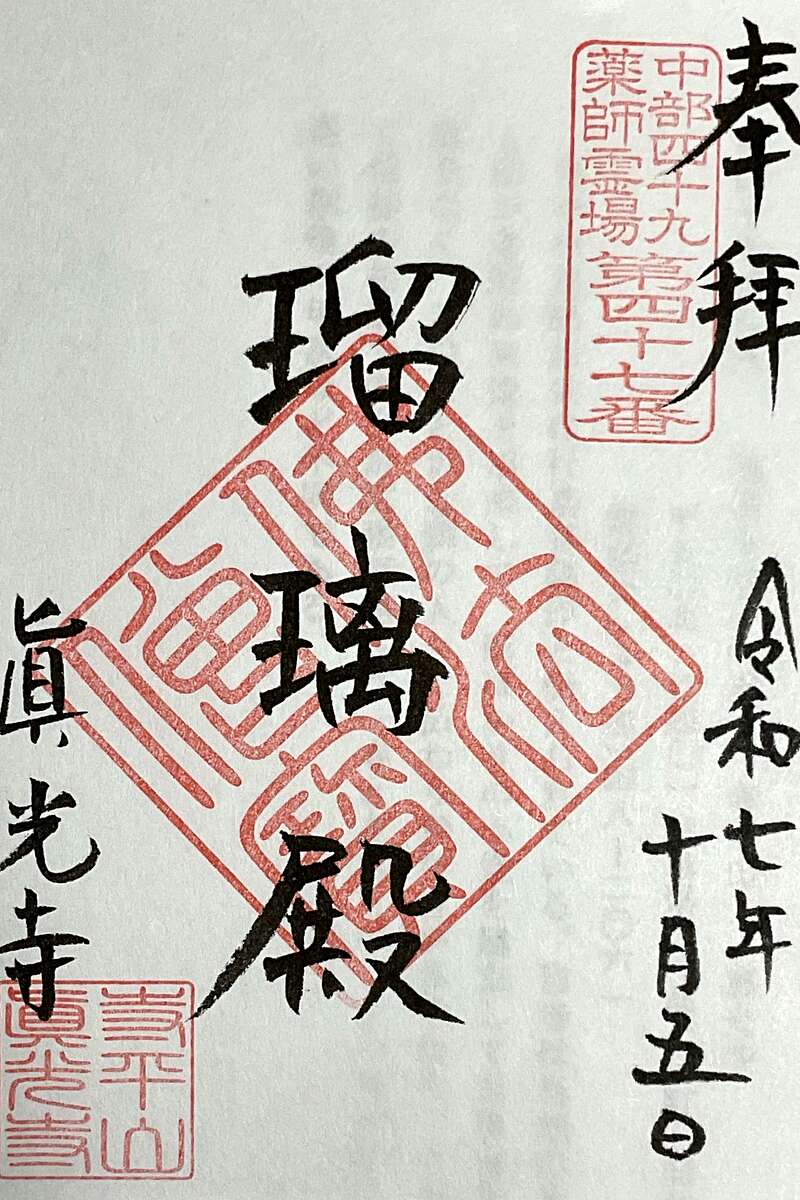 奉拝
中部四十九
薬師霊場
第四十七番
令和七年
十月五日
瑠璃殿
佛法僧寶
眞光寺
平山
眞光寺